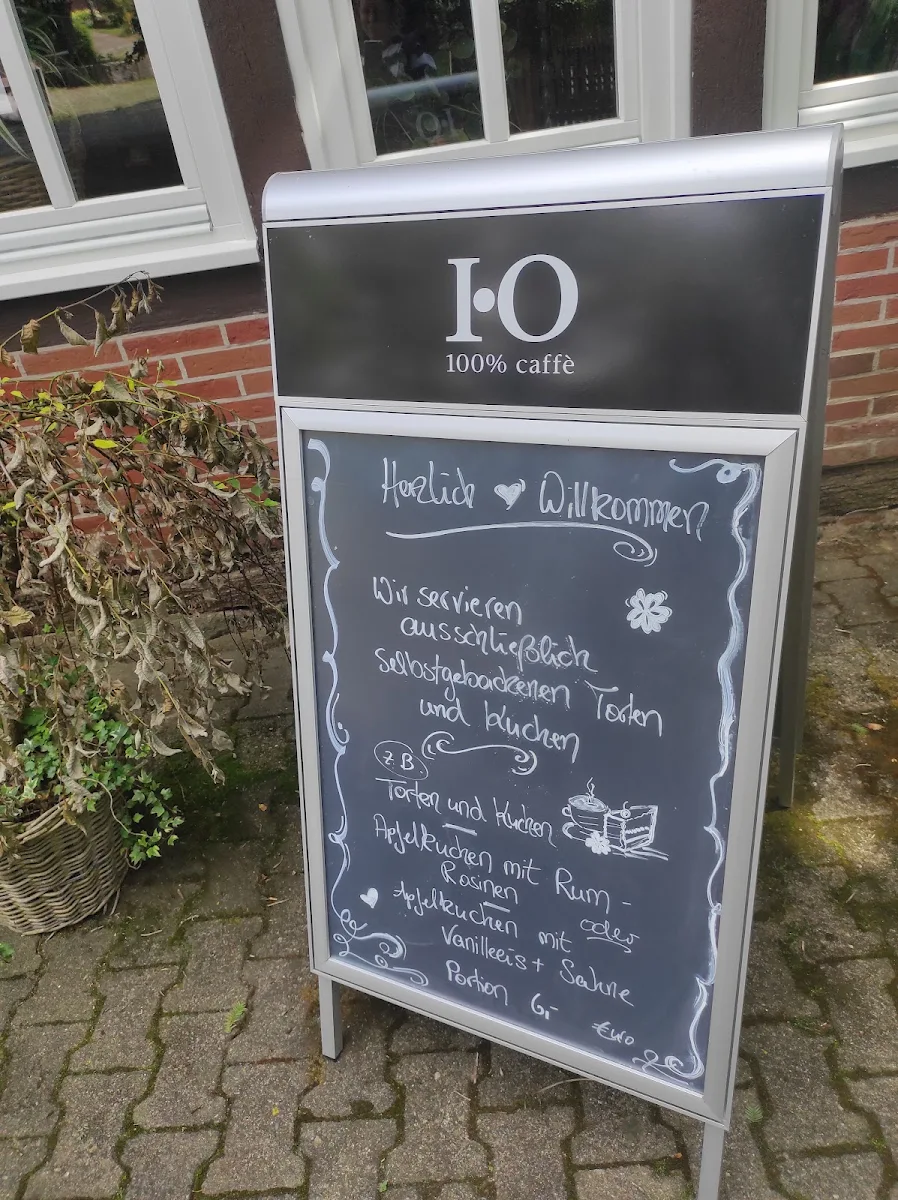 I·O
100% caffè
Herzlich Willkommen
Wir servieren
ausschließlich
selbstgebackenen Torten
und Kuchen
z.B
Torten und Kuchen
Apfelkuchen mit Rum-
Rosinen oder
Apfelkuchen mit
Vanilleeis + Sahne
Portion 6,-
Euro